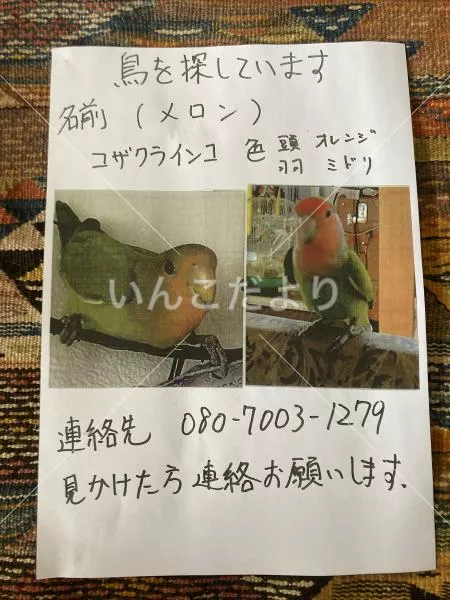 鳥を探しています
名前 (メロン)
コザクラインコ 色 頭 オレンジ
羽 ミドリ
いんこだより
連絡先 080-7003-1279
見かけた方連絡お願いします.